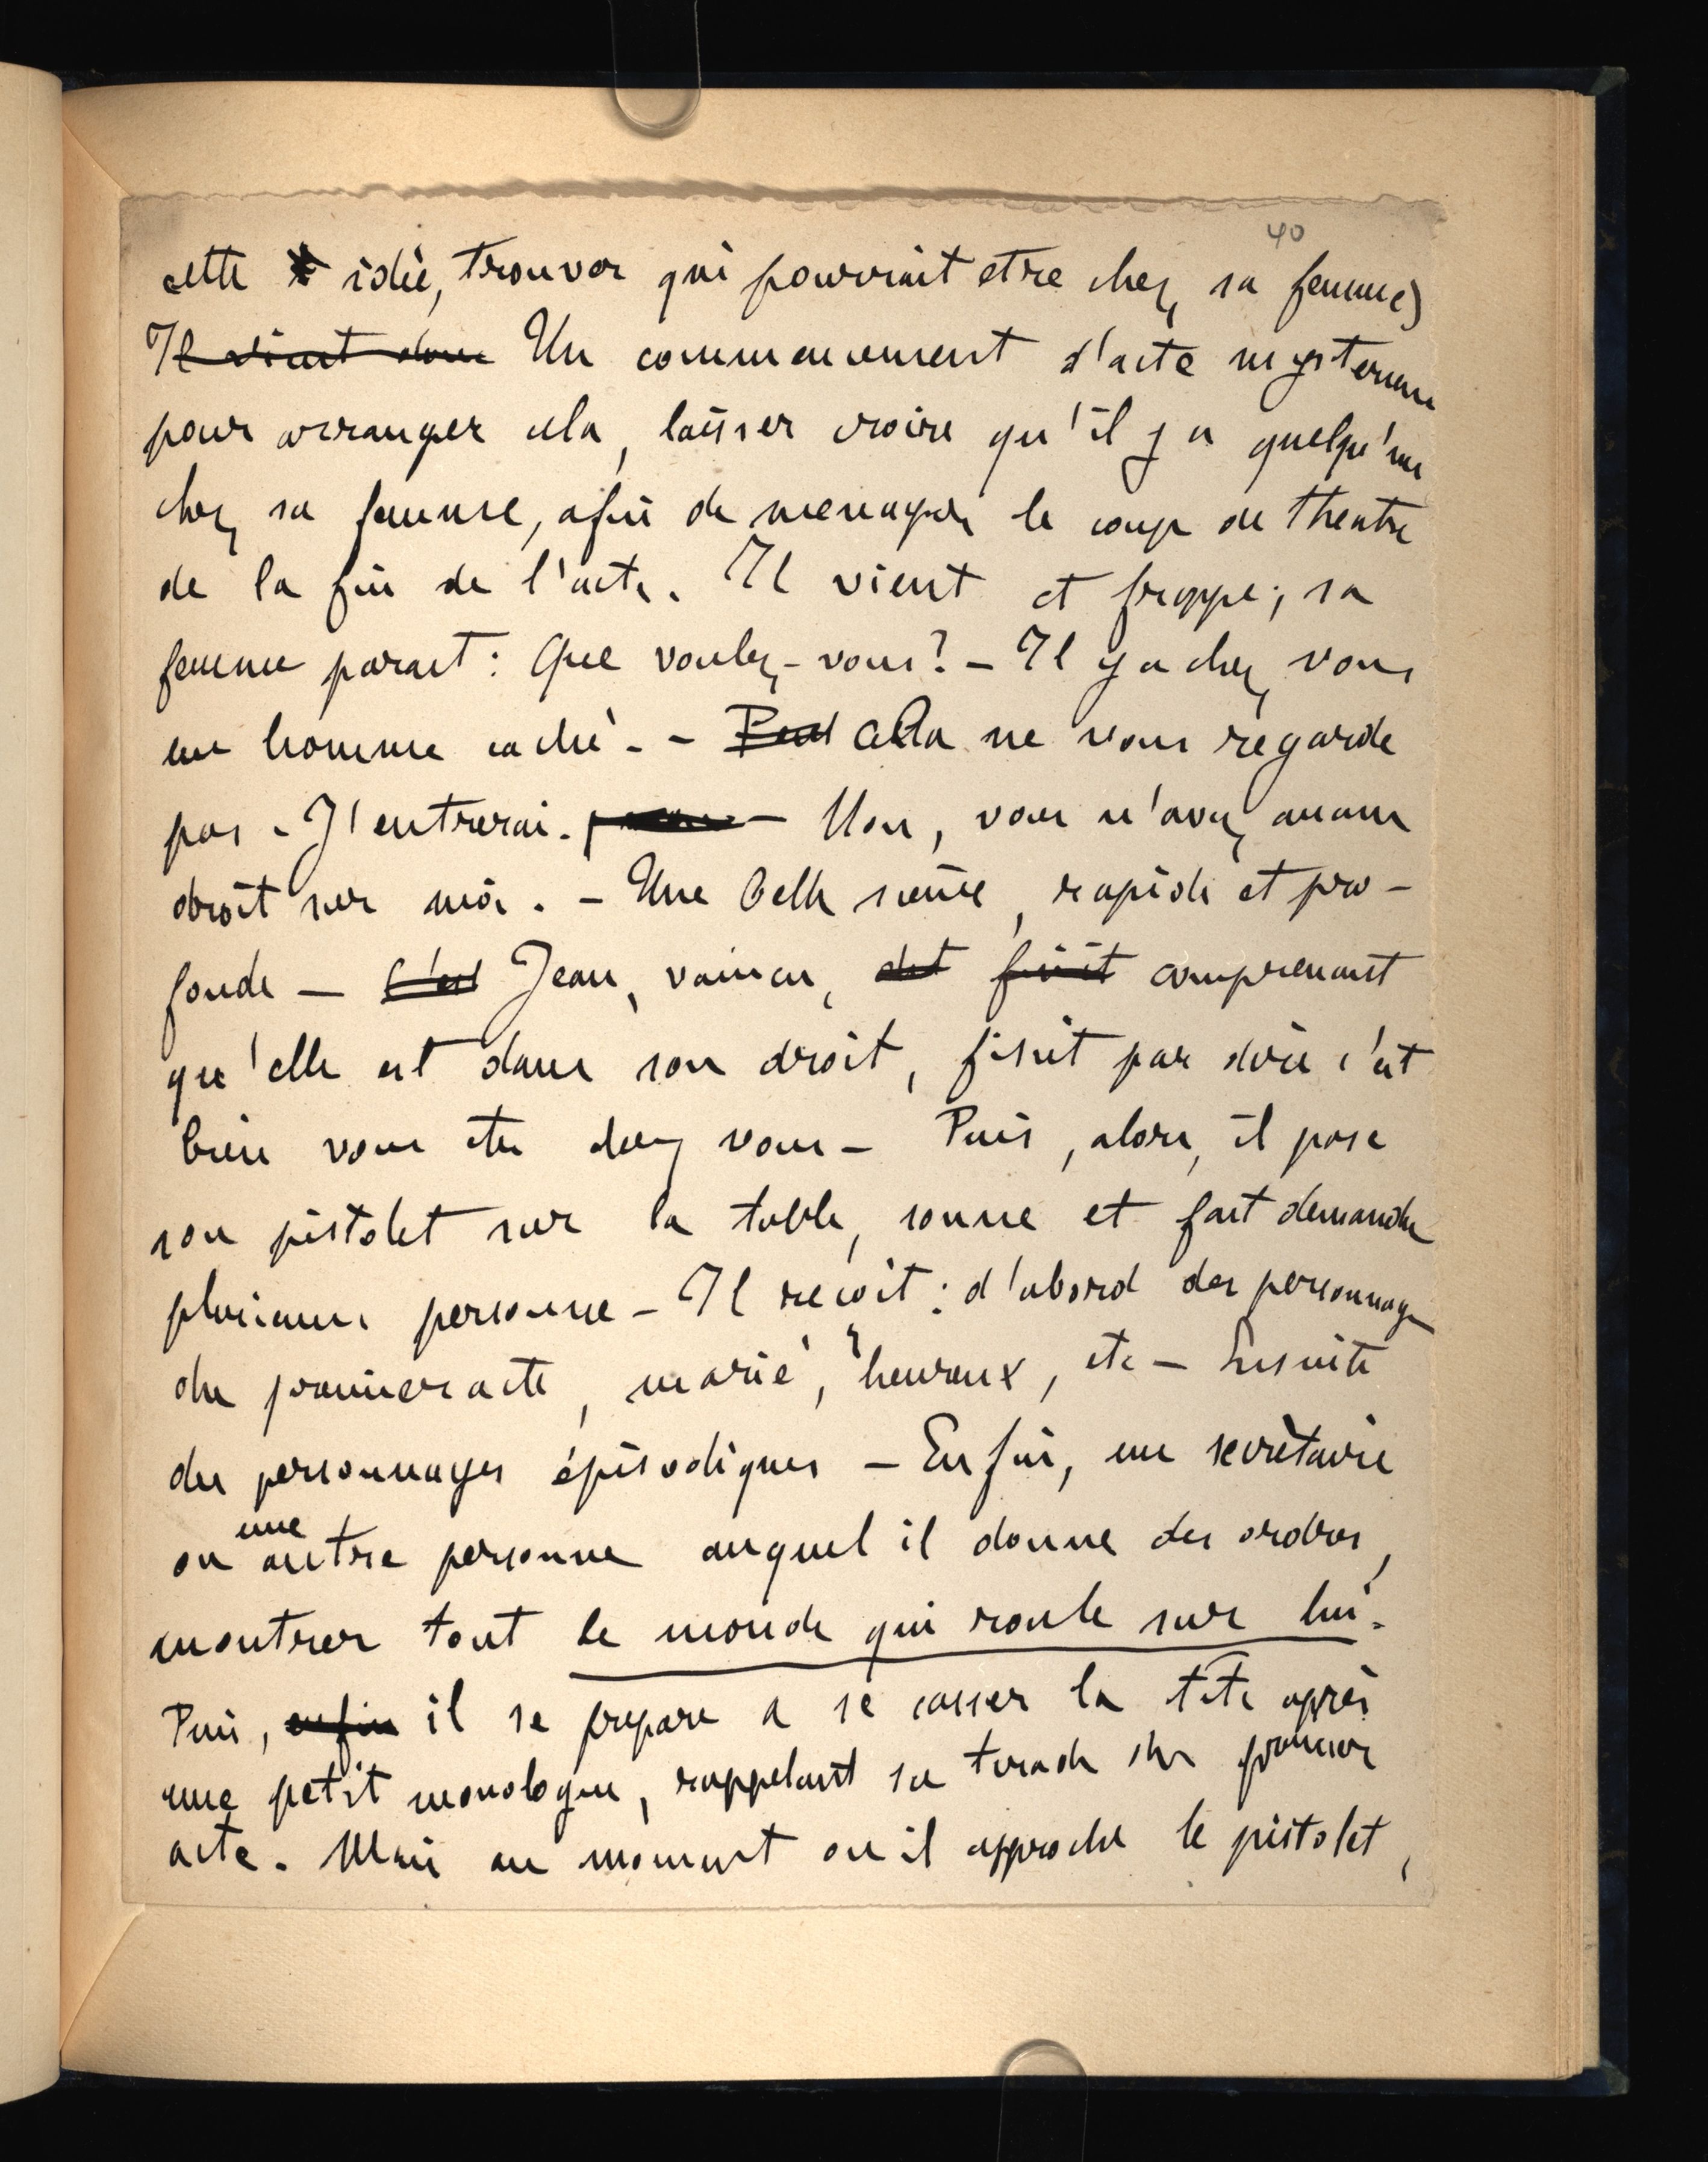 40
cette idée, trouver qui pourrait etre chez sa femme)
Il vient donc Un commencement d'acte mysterieux
pour arranger cela, laisser croire qu'il y a quelqu'un
chez sa femme, afin de menager le coup de theatre
de la fin de l'acte. Il vient et frappe; sa
femme parait: Que voulez-vous? - Il y a chez vous
un homme caché. - Peut cela ne vous regarde
pas - J'entrerai. - Non, vous n'avez aucun
droit sur moi. - Une belle scène, rapide et pro-
fonde - C'est Jean, vaincu, dit finit comprenant
qu'elle est dans son droit, finit par dire c'est
bien vous etes chez vous - Puis, alors, il pose
son pistolet sur la table, sonne et fait demander
plusieurs personne - Il reçoit: d'abord des personnages
du premier acte, marié, heureux, etc - Ensuite
des personnages épisodiques - Enfin, un secrètaire
ou une autre personne auquel il donne des ordres,
montrer tout le monde qui roule sur lui.
Puis, enfin il se prepare a se casser la tete après
une petit monologue, rappelant sa tirade du premier
acte. Mais au moment ou il approche le pistolet,